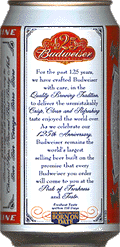 125
Budweiser
For the past 125 years,
we have crafted Budweiser
with care, in the
Quality Brewing Tradition,
to deliver the unmistakably
Crisp, Clean and Refreshing
taste enjoyed the world over.
As we celebrate our
125th Anniversary,
Budweiser remains the
world's largest
selling beer built on the
promise that every
Budweiser you order
will come to you at the
Peak of Freshness
and Taste.
BORN ON
DATE